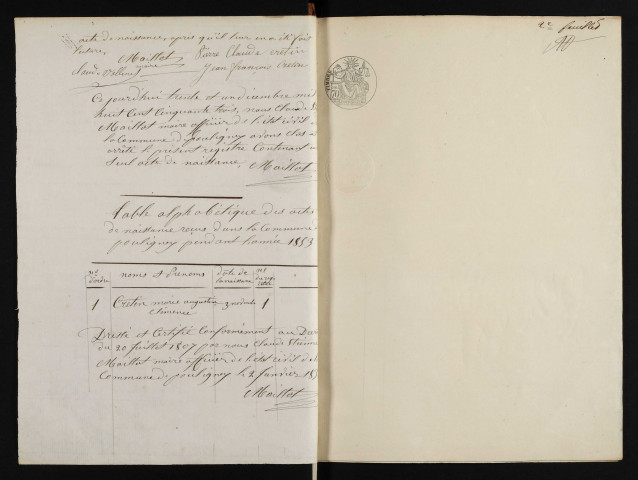 acte de naissance, après qu'il leur en a été fait
lecture.
Maillot Pierre Claude Cretin
maire
Jean François Cretin
Ce jourd'hui trente et un décembre mil
huit cent cinquante trois, nous Claude
Maillot maire officier de l'état civil de
la Commune de pouligney avons clos
arrêté le présent registre Contenant un
seul acte de naissance. Maillot
table alphabétique des actes
de naissance reçus dans la Commune
pouligney pendant l'année 1853
no d'ordre noms et Prénoms date de la naissance
1 Cretin marie augustine 1
Clémence
Dressé et Certifié Conformément au
du 20 Juillet 1807 par nous Claude Etienne
Maillot maire officier de l'état civil de
Commune de pouligney le 2 Janvier
Maillot
2e feuillet